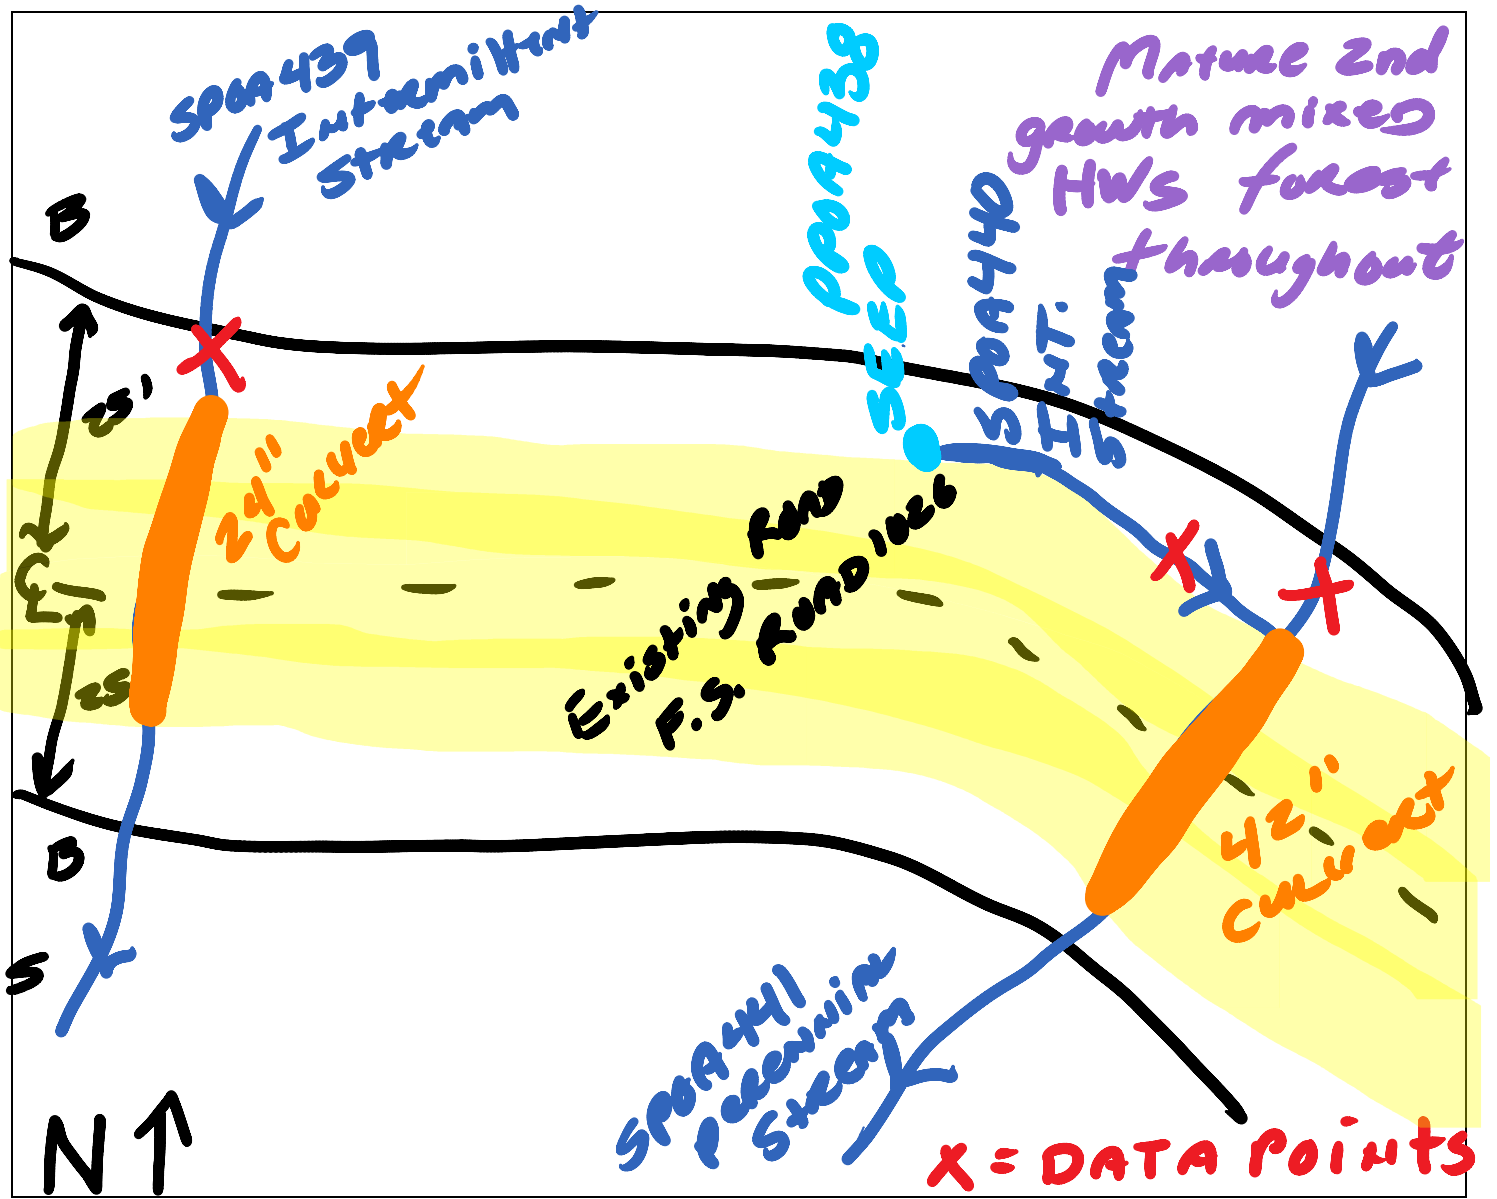 SPOA439
Intermittent
Stream
PPOA438
SEEP
SPOA440
INT.
Stream
Mature 2nd
growth mixed
HWS forest
throughout
B
25'
24"
Culvert
CL
25'
Existing Row
F.S. ROAD 1026
42"
Culvert
B
S
SPOA441
Perennial
Stream
N
X = DATA POINTS